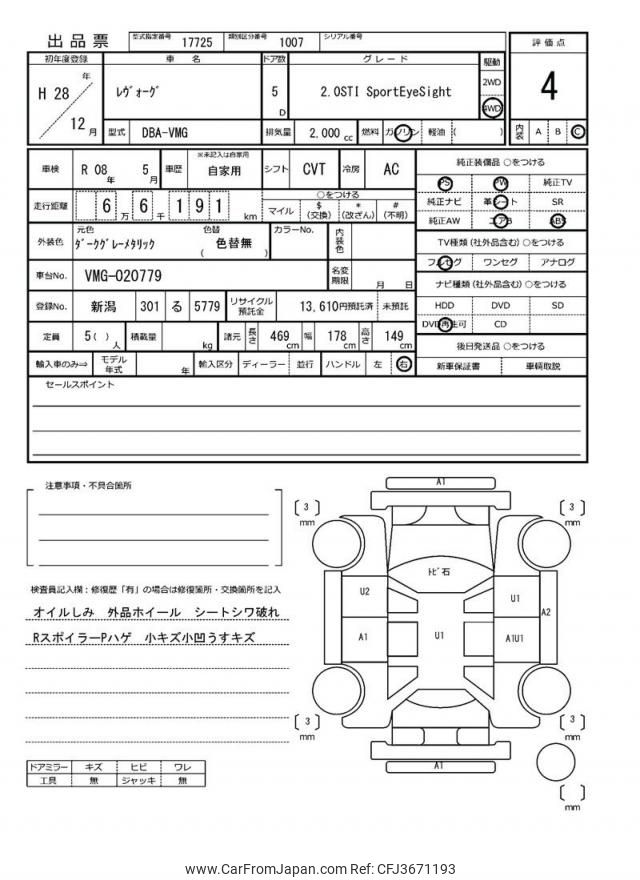 出品票 型式指定番号 17725 類別区分番号 1007 シリアル番号
初年度登録 車名 ドア数 グレード 駆動 評価点
H 28 年 12 月 レヴォーグ 5 D 2.0STI SportEyeSight 2WD 4WD 4
型式 DBA-VMG 排気量 2.000 cc 燃料 ガソリン 軽油 ( ) 内装 A B C
車検 R 08 年 5 月 車歴 ※未記入は自家用 自家用 シフト CVT 冷房 AC
走行距離 6 万 6 千 1 9 1 km ○をつける マイル $ (交換) * (改ざん) # (不明)
外装色 元色 ダークグレーメタリック 色替 ( 色替無 ) カラーNo. 内装色
車台No. VMG-020779 名変期限 月 日
登録No. 新潟 301 る 5779 リサイクル預託金 13,610円預託済 未預託
定員 5 ( ) 人 積載量 kg 諸元 長さ 469 cm 幅 178 cm 高さ 149 cm
輸入車のみ⇒ モデル年式 年 輸入区分 ディーラー 並行 ハンドル 左 右
純正装備品 ○をつける
PS PW 純正TV
純正ナビ 革シート SR
純正AW エアB ABS
TV種類 (社外品含む) ○をつける
フルセグ ワンセグ アナログ
ナビ種類 (社外品含む) ○をつける
HDD DVD SD
DVD再生可 CD
後日発送品 ○をつける
新車保証書 車輌取説
セールスポイント
注意事項・不具合箇所
検査員記入欄：修復歴「有」の場合は修復箇所・交換箇所を記入
オイルしみ 外品ホイール シートシワ破れ
RスポイラーPハゲ 小キズ小凹うすキズ
ドアミラー キズ ヒビ ワレ
工具 無 ジャッキ 無
A1
3 mm
3 mm
トビ石
U2
U1
A2
A1
U1
A1U1
3 mm
3 mm
A1
mm
www.CarFromJapan.com Ref: CFJ3671193